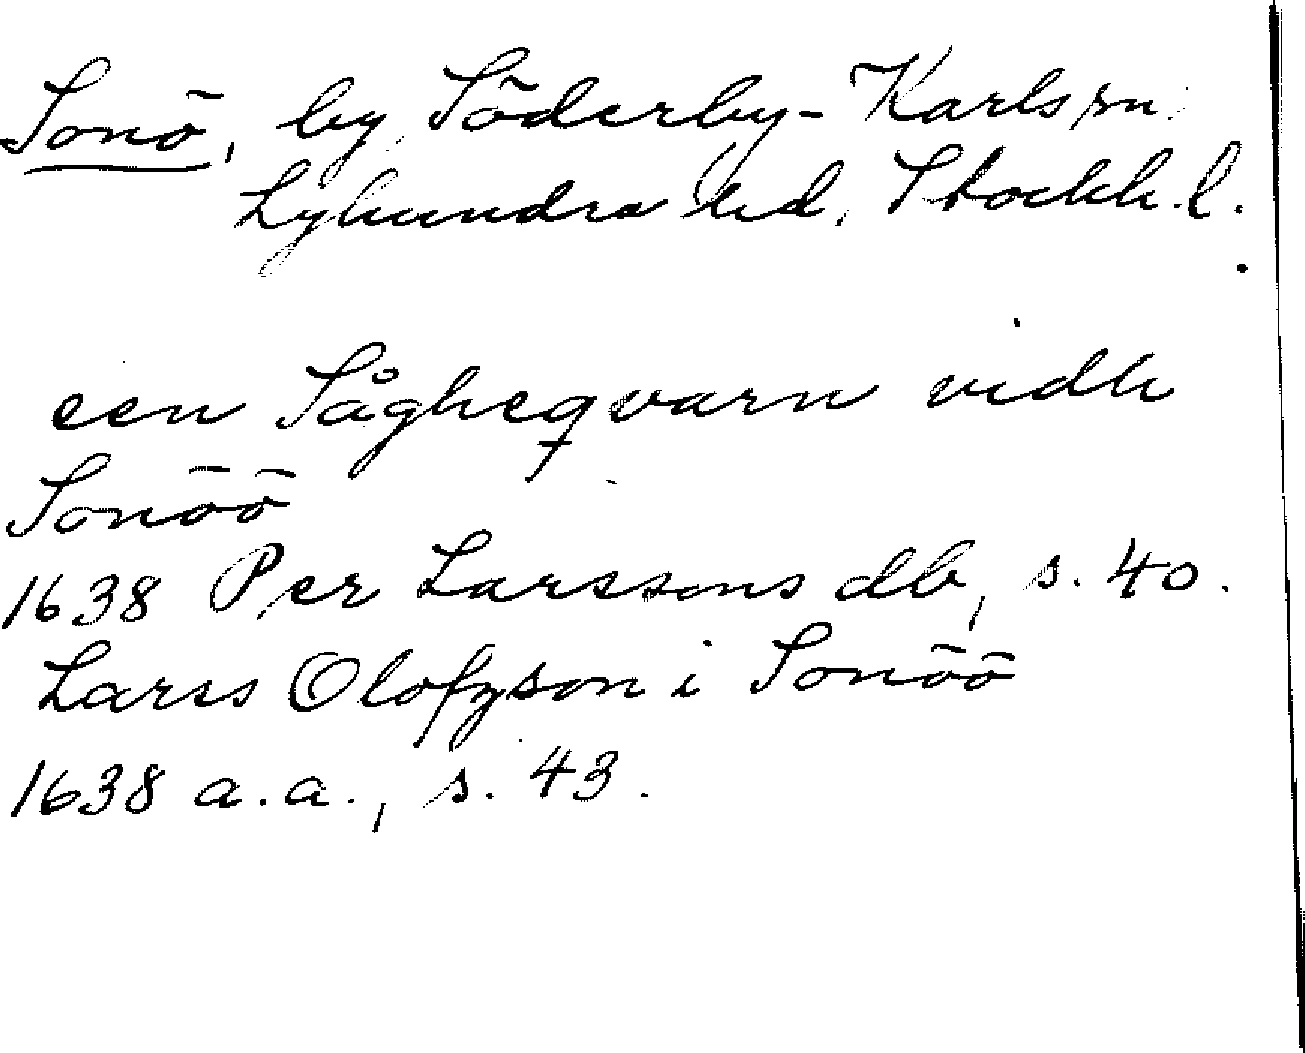 Sonö, by, Söderby-Karls sn
Lyhundra hd, Stockh. l.
een Sågheqvarn vidh
Sonöö
1638 Per Larssons db, s. 40.
Larss Olofzson i Sonöö
1638 a.a., s. 43.